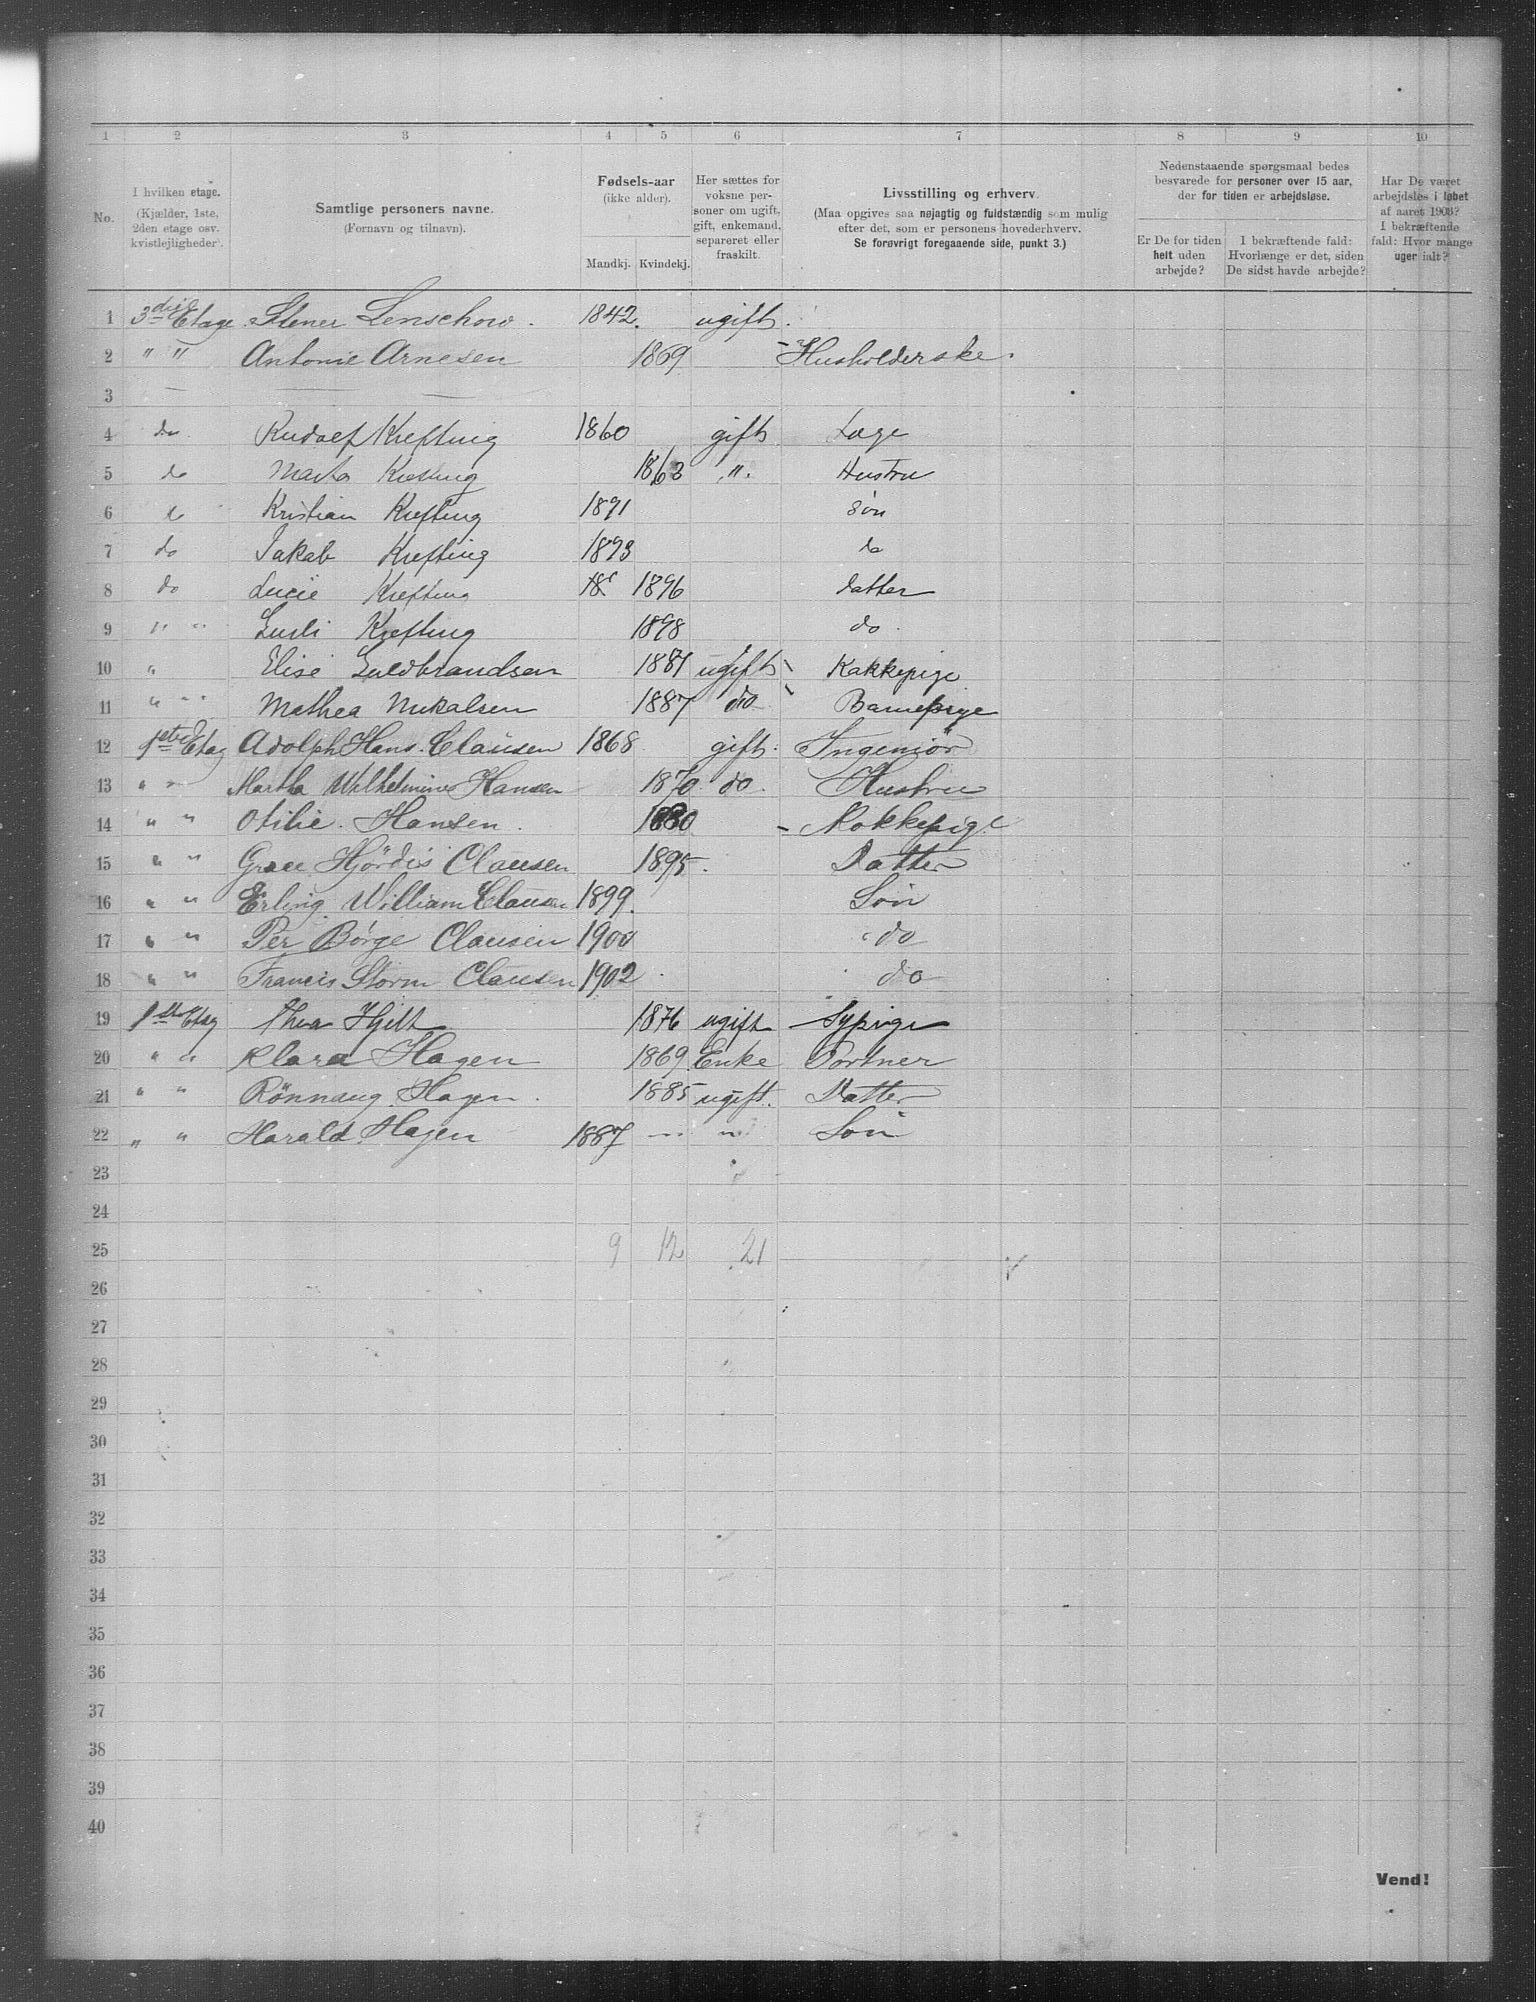 1 2 3 4 5 6 7 8 9 10
No.
I hvilken etage.
(Kjælder, 1ste,
2den etage osv.
kvistlejligheder).
Samtlige personers navne.
(Fornavn og tilnavn).
Fødsels-aar
(ikke alder).
Mandkj. Kvindekj.
Her sættes for
voksne per-
soner om ugift,
gift, enkemand,
separeret eller
fraskilt.
Livsstilling og erhverv.
(Maa opgives saa nøjagtig og fuldstændig som mulig
efter det, som er personens hovederhverv.
Se forøvrigt foregaaende side, punkt 3.)
Nedenstaaende spørgsmaal bedes
besvarede for personer over 15 aar,
der for tiden er arbejdsløse.
Er De for tiden
helt uden
arbejde?
I bekræftende fald:
Hvorlænge er det, siden
De sidst havde arbejde?
Har De været
arbejdsløs i løbet
af aaret 1903?
I bekræftende
fald: Hvor mange
uger ialt?
1 3die Etage Stener Lenschow. 1842. ugift.
2 " " Antonie Arnesen 1869 Husholderske.
3 —
4 do Rudolf Krefting 1860 gift Læge
5 do Marta Krefting 1863 " Hustru
6 do Kristian Krefting 1891 søn
7 do Jakob Krefting 1893 do
8 do Lucie Krefting 18 1896 datter
9 " " Krefting 1898 do
10 " Elise Guldbrandsen 1881 ugift Kokkepige
11 " " Mathea Mikalsen 1887 do Barnepige
12 1ste Etag Adolph Hans Clausen 1868 gift. Ingeniør
13 " " Martha Wilhelmine Hansen 1870 do. Hustru
14 " " Otilie Hansen. 1880 Kokkepige
15 " " Grace Hjørdis Clausen 1895. Datter
16 " " Erling William Clausen 1899. Søn
17 " " Per Børge Clausen 1900 do
18 " " Francis Storm Clausen 1902 do
19 1ste Etag Thea Hjelt 1876 ugift Sypige
20 " " Klara Hagen 1869. Enke Portner
21 " " Rönnaug Hagen. 1885 ugift. Datter
22 " " Harald Hagen 1887 " " Søn
23
24
25 9 12 21
26
27
28
29
30
31
32
33
34
35
36
37
38
39
40
Vend!